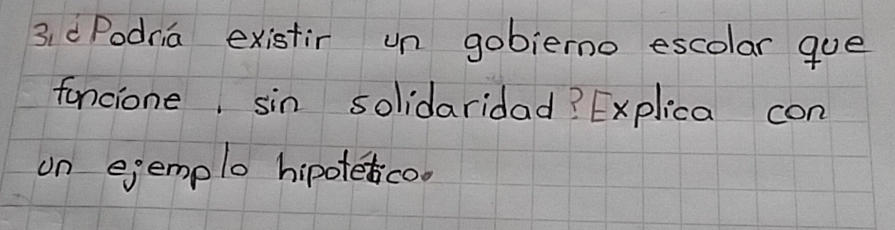 3. ¿Podría existir un gobierno escolar que
funcione, sin solidaridad? Explica con
un ejemplo hipotético.